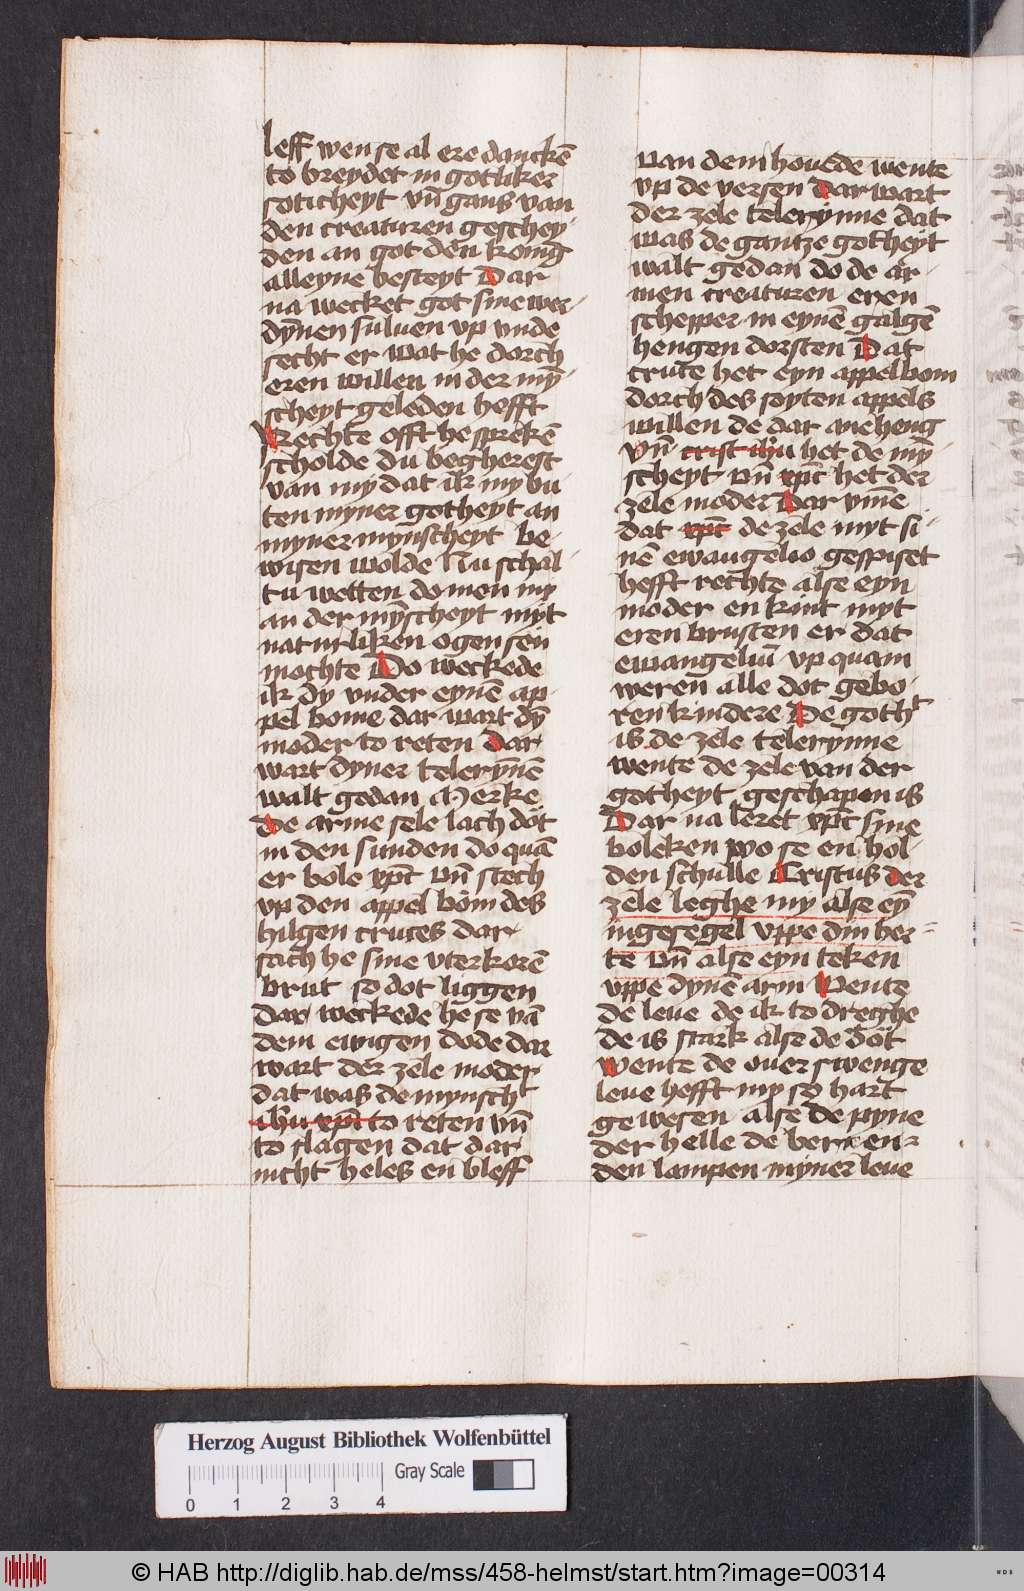 leff wen se al ere danckē
to breydet in gotliker
soticheyt vn̄ gans van
den creaturen geschey-
den an got den konig
alleyne besteyt Dar
na wecket got sine wer-
dynnen suluen vp vnde
secht er wat he dorch
eren willen in der my̅-
scheyt geleden hefft
Rechte offt he sprekē
scholde du begherest
van my dat ik my bu
ten myner gotheyt an
myner mynscheyt be-
wisen wolde Nu schal-
tu wetten do men my
an der my̅scheyt myt
naturliken ogen sen
mochte Do weckede
ik dy vnder eynē ap-
pel bome dar wart dy̅
moder to reten dar
wart dyner telerynnē
walt gedan Merke
de arme sele lach dot
in den sunden do quā
er bole xp̄c vn̄ stech
vp den appel bom des
hilgen cruces dar
sach he sine vterkorē
brut so dot liggen
dar weckede he se vā
dem ewigen dode dar
wart der zele moder
dat was de mynscht
ih̄u xp̄i to reten vn̄
to slagen dat dar
nicht heles en bleff
van dem houede wente
vp de versen Dar wart
der zele telerynne dat
was de gantze gotheyt
walt gedan do de ar-
men creaturen eren
schepper in eynē galgē
hengen dorsten Dat
cruce het eyn appelbom
dorch des soyten appels
willen de dar ane heng
vn̄ crist ih̄u het de my̅-
scheyt vn̄ xp̄c het der
zele moder Dar vmē
dat xp̄c de zele myt si-
nē ewangelio gespiset
hefft rechte alse eyn
moder en kint myt
eren brusten er dat
ewangeliū vp quam
weren alle dot gebo-
ren kindere De gotht
is de zele telerynne
wente de zele van der
gotheyt geschapen is
Dar na leret xp̄c sine
boleken wo se en hol-
den schulle Cristus der
zele leghe my alse ey̅
ingesegel vppe din her-
te vn̄ alse eyn teken
vppe dynē arm Wente
de leue de ik to dreghe
de is stark alse de dot
wente de ouer swenge
leue hefft my so hart
gewesen alse de pyne
der helle de bernen-
den lampen myner leue
Herzog August Bibliothek Wolfenbüttel
Gray Scale
0 1 2 3 4
© HAB http://diglib.hab.de/mss/458-helmst/start.htm?image=00314